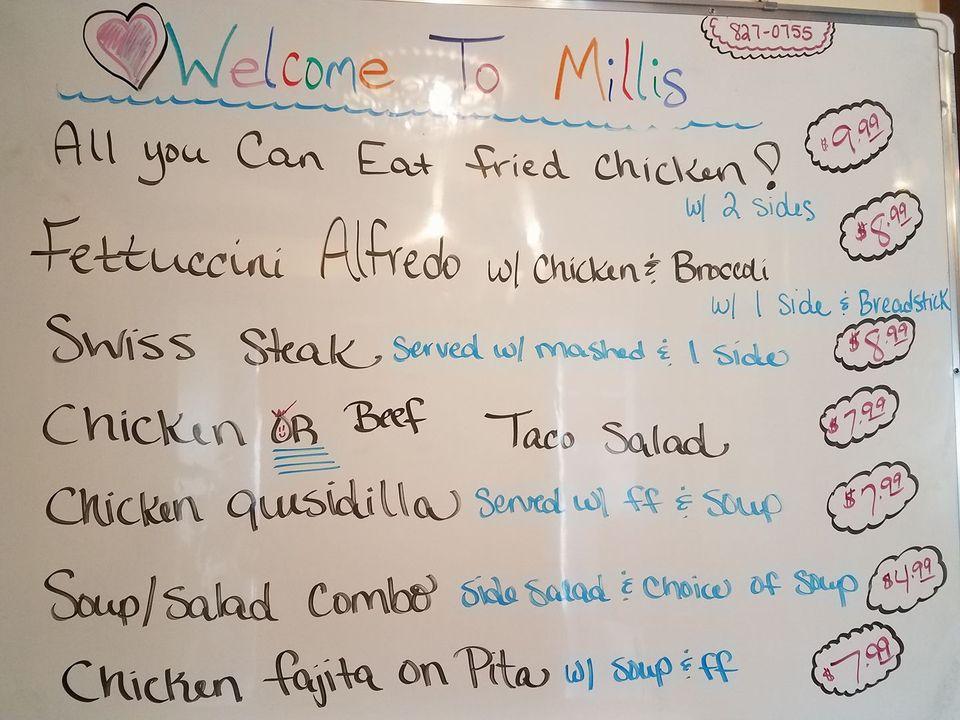 Welcome To Millis
827-0755
All you Can Eat fried Chicken! $9.99
w/ 2 sides
Fettuccini Alfredo w/ Chicken & Broccoli $8.99
w/ 1 side & Breadstick
Swiss Steak Served w/ mashed & 1 side $8.99
Chicken OR Beef Taco Salad $7.99
Chicken qusidilla Served w/ ff & Soup $7.99
Soup/Salad Combo Side Salad & Choice of Soup $4.99
Chicken fajita on Pita w/ Soup & ff $7.99